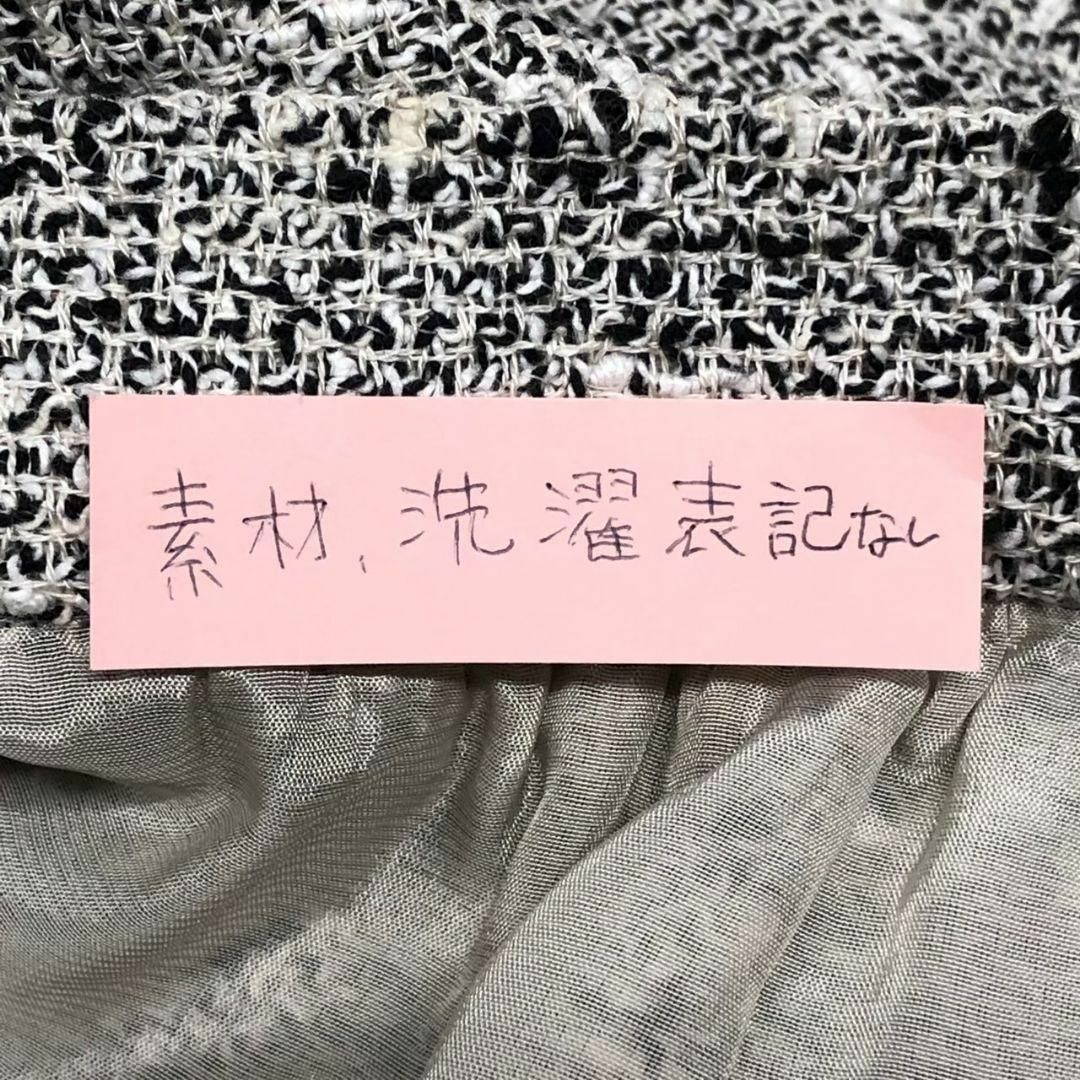 素材、洗濯表記なし